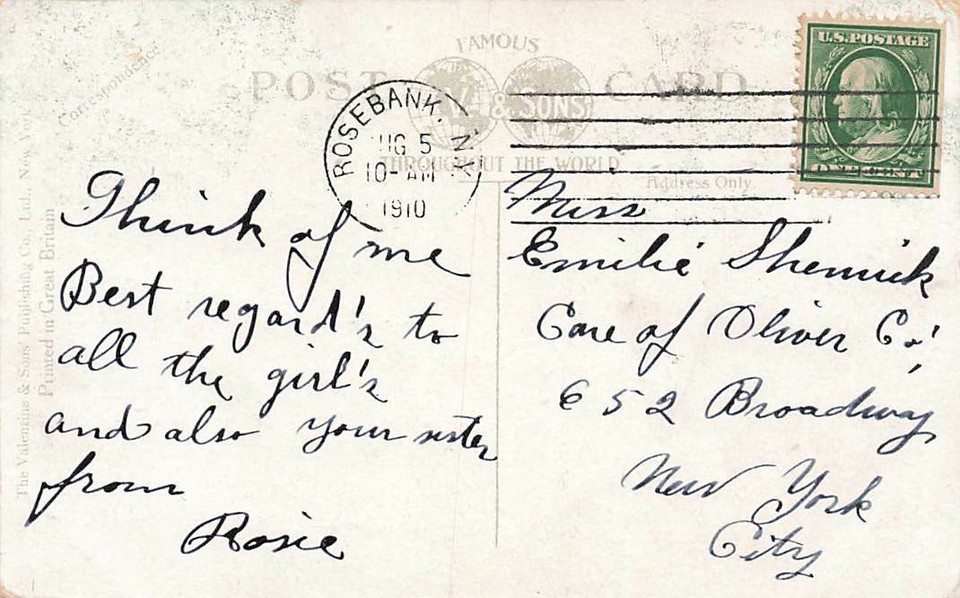 FAMOUS
POST CARD
& SONS
THROUGHOUT THE WORLD
Correspondence
Address Only
U.S. POSTAGE
ROSEBANK, N.Y.
AUG 5
10-AM
1910
The Valentine & Sons' Publishing Co., Ltd., New York
Printed in Great Britain
Think of me
Best regard's to
all the girl's
and also your sister
from
Rosie
Miss
Emilie
Care of Oliver Co.
652 Broadway
New York
City